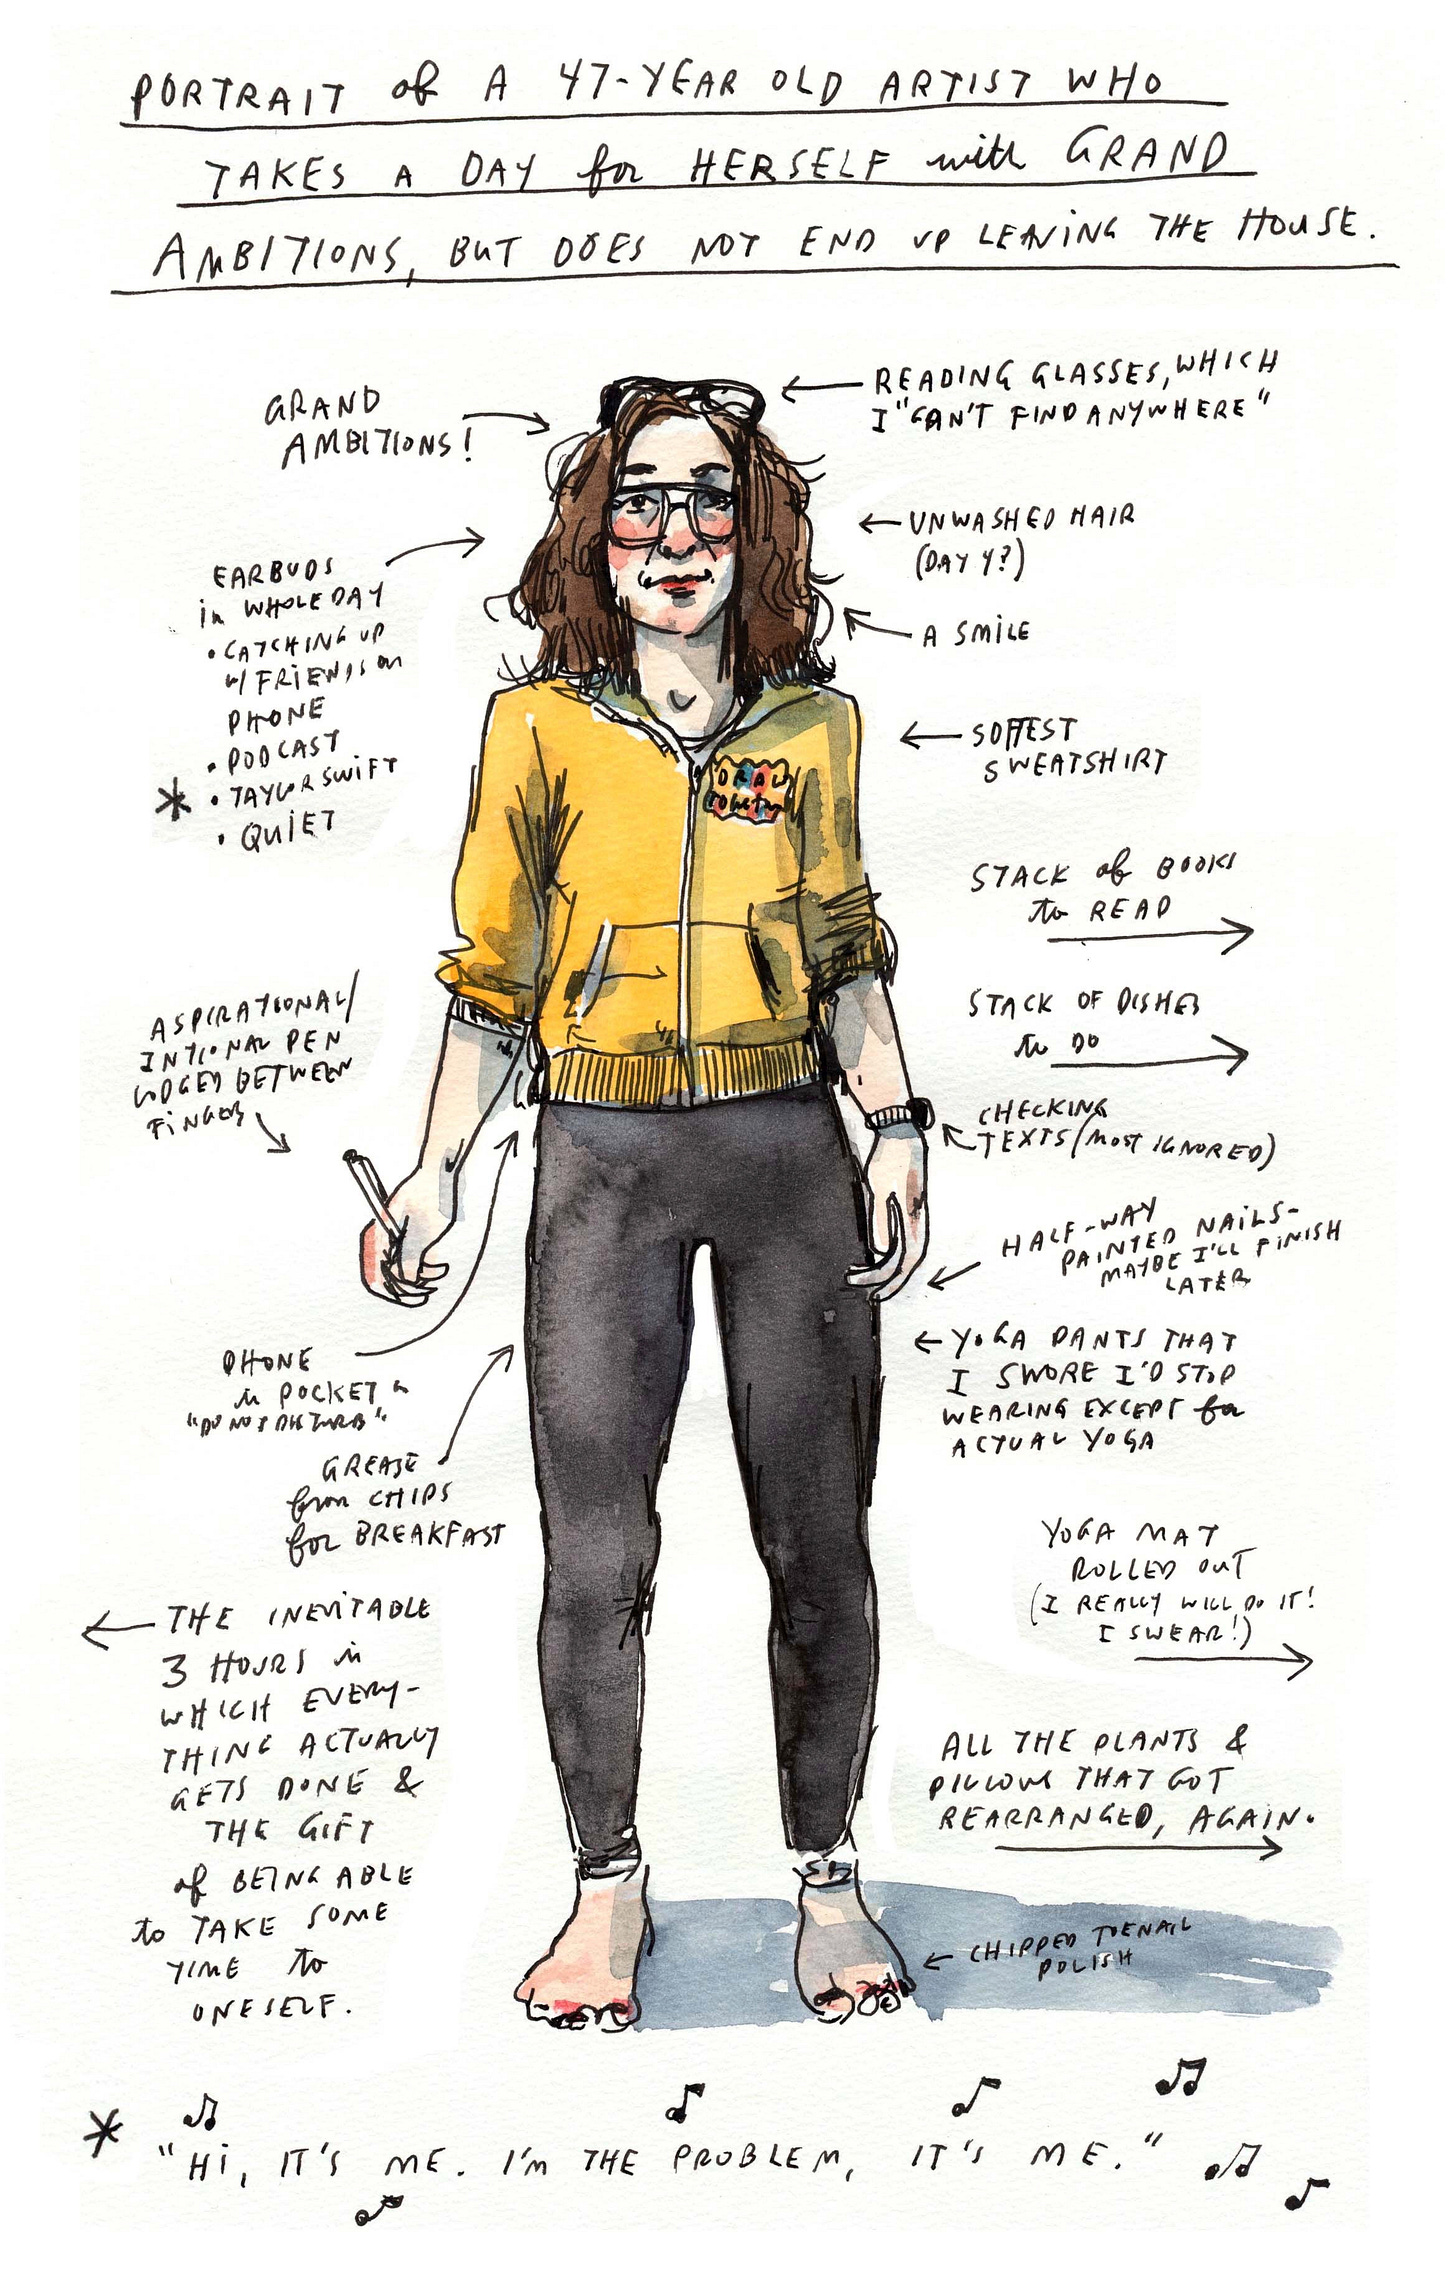 PORTRAIT of A 47-YEAR OLD ARTIST WHO
TAKES A DAY for HERSELF with GRAND
AMBITIONS, BUT DOES NOT END UP LEAVING THE HOUSE.
GRAND
AMBITIONS!
READING GLASSES, WHICH
I "CAN'T FIND ANYWHERE"
UNWASHED HAIR
(DAY 4?)
A SMILE
EARBUDS
in WHOLE DAY
• CATCHING UP
w/ FRIENDS on
PHONE
• PODCAST
* • TAYLOR SWIFT
• QUIET
SOFTEST
SWEATSHIRT
DRAW
TOGETHER
STACK of BOOKS
to READ
STACK OF DISHES
to DO
ASPIRATIONAL/
INTIONAL PEN
LODGED BETWEEN
FINGERS
CHECKING
TEXTS (MOST IGNORED)
HALF-WAY
PAINTED NAILS-
MAYBE I'LL FINISH
LATER
PHONE
in POCKET
"DO NOT DISTURB"
YOGA PANTS THAT
I SWORE I'D STOP
WEARING EXCEPT for
ACTUAL YOGA
GREASE
from CHIPS
for BREAKFAST
YOGA MAT
ROLLED OUT
(I REALLY WILL DO IT!
I SWEAR!)
THE INEVITABLE
3 HOURS in
WHICH EVERY-
THING ACTUALLY
GETS DONE &
THE GIFT
of BEING ABLE
to TAKE SOME
TIME to
ONESELF.
ALL THE PLANTS &
PILLOWS THAT GOT
REARRANGED, AGAIN.
CHIPPED TOENAIL
POLISH
* "HI, IT'S ME. I'M THE PROBLEM, IT'S ME."